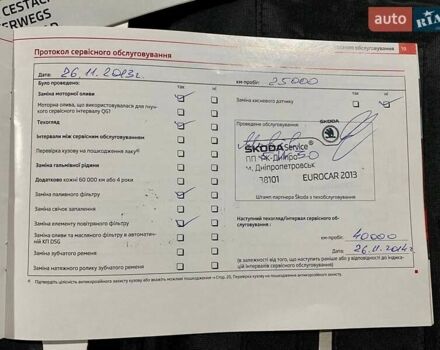 CESTACH
ERWEGS
auto RIA
Протокол сервісного обслуговування
обслуговування 19
Дата: 26.11.2013г.
км-пробіг: 25000
Було проведено: так ні
так ні
Заміна моторної оливи
Заміна кисневого датчику
Моторна олива, що використовувалася для гнучкого сервісного інтервалу QG1
Техогляд
Проведене обслуговування:
ŠKODA
Інтервали між сервісним обслуговуванням
Перевірка кузову на пошкодження лаку¹⁾
ŠKODA Service®
Заміна гальмівної рідини
ПП "РК-Дніпро"
м. Дніпропетровськ
Додатково кожні 60 000 км або 4 роки
38101 EUROCAR 2013
Заміна паливного фільтру
Штамп партнера Škoda з техобслуговування
Заміна свічок запалення
Заміна елементу повітряного фільтру
Наступний техогляд/інтервал сервісного обслуговування:
Заміна оливи та масляного фільтру в автоматичній КП DSG
км-пробіг: 40000
Дата: 26.11.2014г.
Заміна зубчатого ременя
(в залежності від того, що наступить раніше або у відповідності до індикації інтервалів сервісного обслуговування)
Заміна натяжного ролику зубчатого ременя
¹⁾ Підтвердіть цілісність антикорозійного захисту кузову або вкажіть можливі пошкодження → Стор. 20, Перевірка кузову на пошкодження антикорозійного захисту.